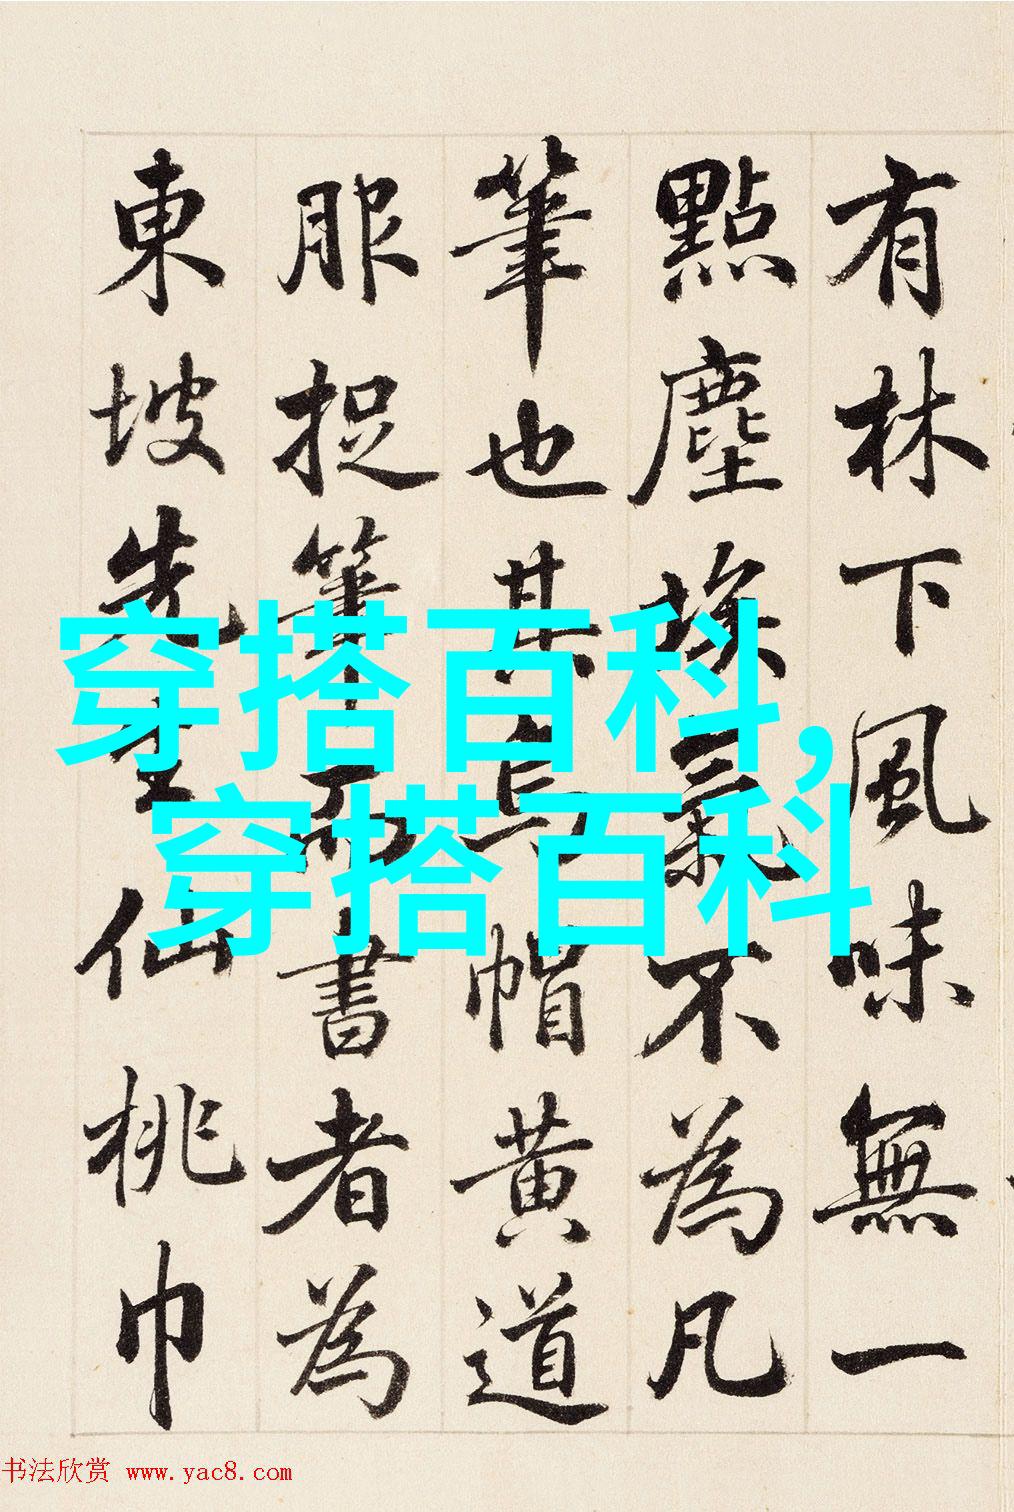 有林下風味無一
點塵埃氣不為凡
筆也其烏帽黃道
服捉筆而書者為
東坡先生仙桃巾
穿搭百科,
穿搭百科
书法欣赏 www.yac8.com